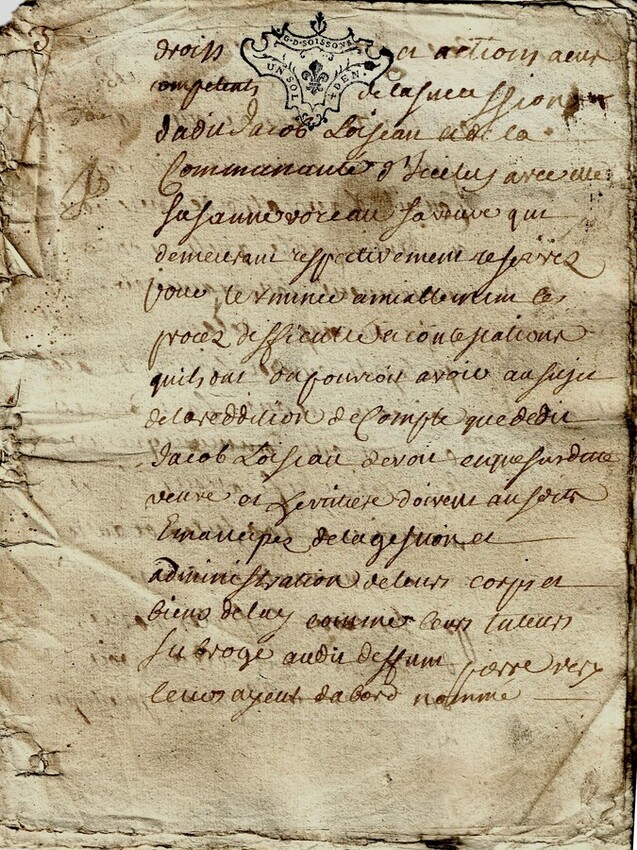 3
G·D·SOISSONS
UN SOL DEN.
droiss et actions aeux
competents de la succession
dudit Jacob Loiseau et de la
Communauté d'Icelluy avec
Susanne voreau sa veuve qui
demeurant respectivement reservez
pour terminer amiablement les
procez difficulté et contestations
quils ont ou pouroit avoir au sujet
de la reddition de Compte que ledit
Jacob Loiseau devoit et que sa ditte
veuve et heritiere doivent ausdits
Emancipez de la gestion et
administration de leurs corps et
biens de luy comme leurs tuteurs
subrogé audit deffunt pierre
ayent dabord nommé